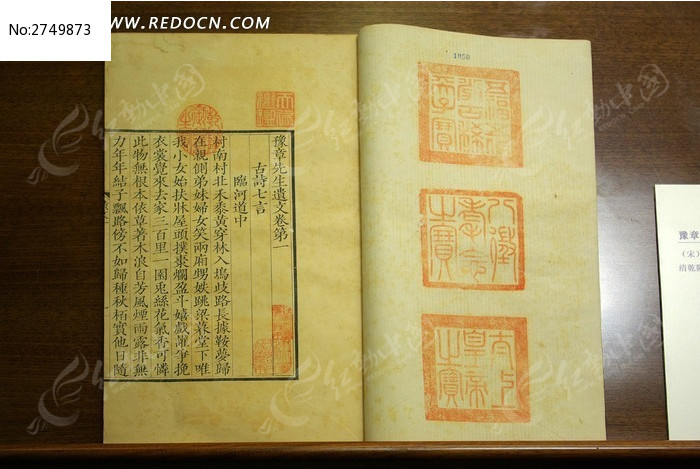 No:2749873
WWW.REDOCN.COM
豫章先生遺文卷第一
古詩七言
臨河道中
村南村北禾黍黃穿林入塢歧路長據鞍夢歸
在親側弟妹婦女笑兩廂甥姪跳梁暮堂下唯
我小女始扶牀屋頭撲棗爛盈斗嬉戲喧爭挽
衣裳覺來去家三百里一園兔絲花氣香可憐
此物無根本依草著木浪自芳風煙雨露非無
力年年結子飄路傍不如歸種秋柏實他日隨
1050
八徵耄念之寶
太上皇帝之寶
豫章
（宋）
清乾
红动中国